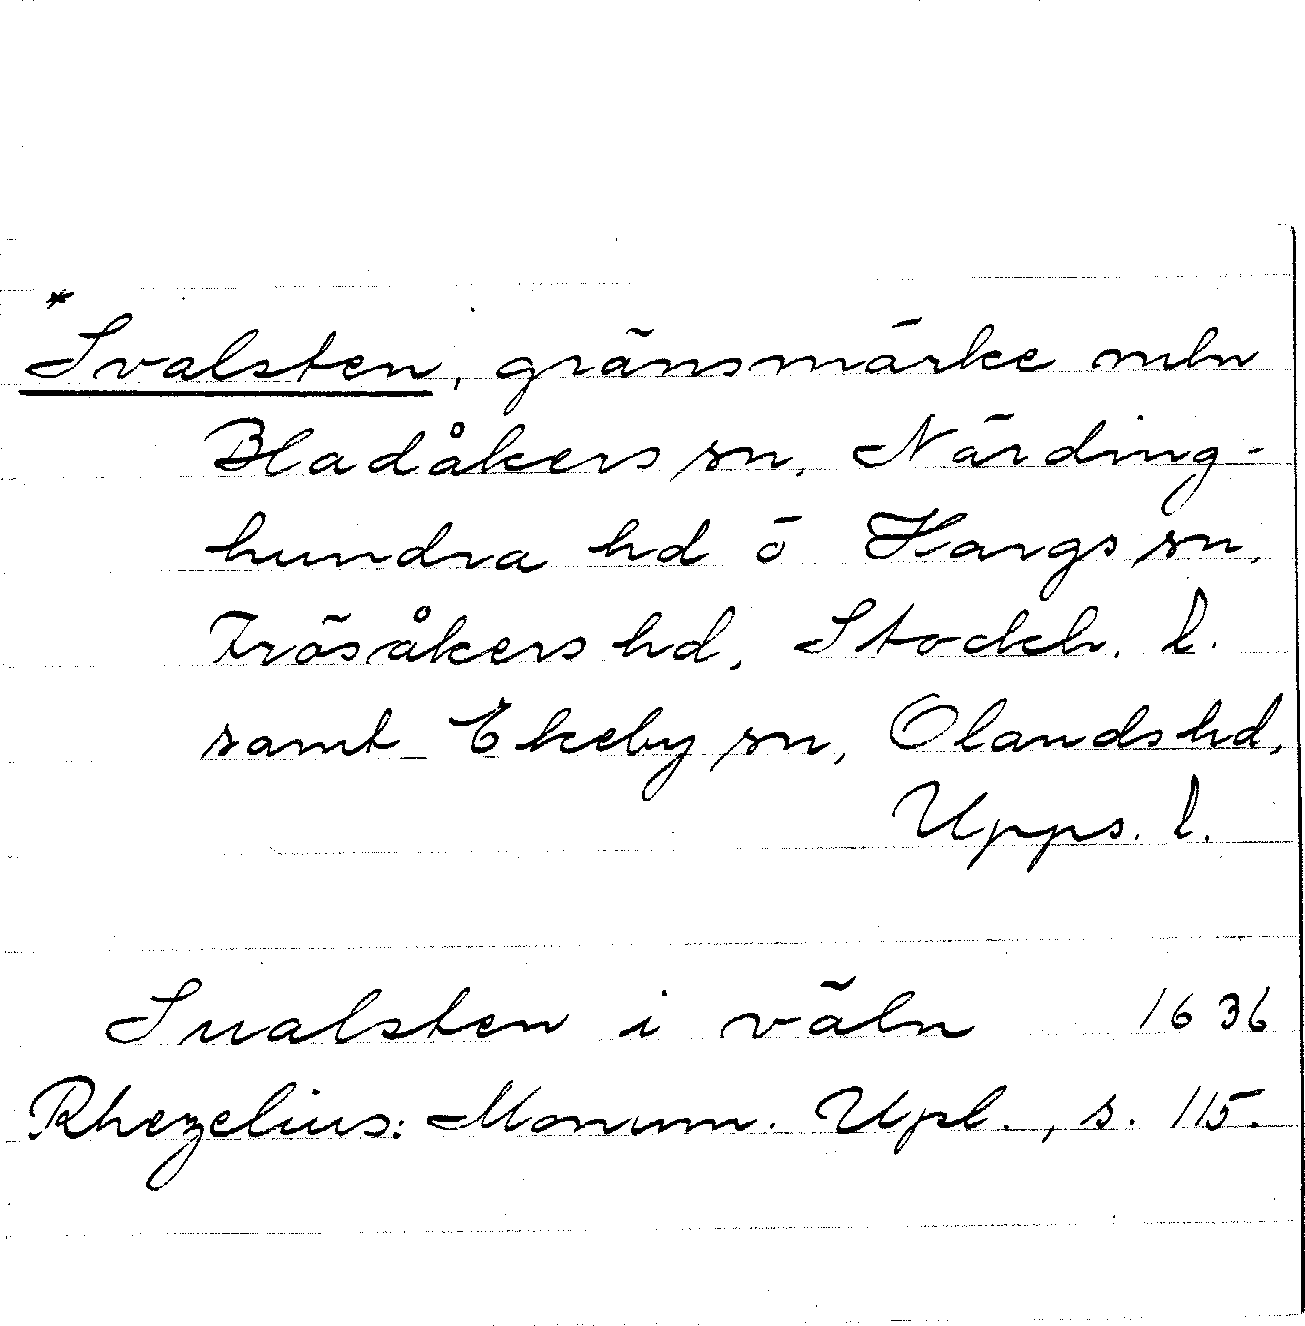 *
Svalsten, gränsmärke mln
Bladåkers sn, Närding-
hundra hd o Hargs sn,
Frösåkers hd, Stockh. l.
samt Ekeby sn, Olands hd,
Upps. l.
Sualsten i väln 1636
Rhezelius: Monum. Upl., s. 115.